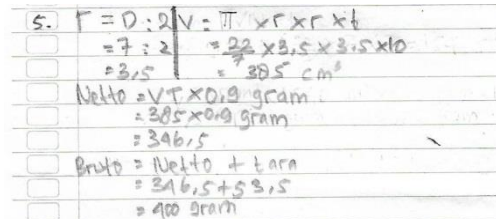 5. r = D : 2 V = π x r x r x t
= 7 : 2 = 22/7 x 3,5 x 3.5 x 10
= 3,5 = 385 cm³
Netto = VT x 0.9 gram
= 385 x 0.9 gram
= 346,5
Bruto = Netto + tara
= 346,5 + 53,5
= 400 gram